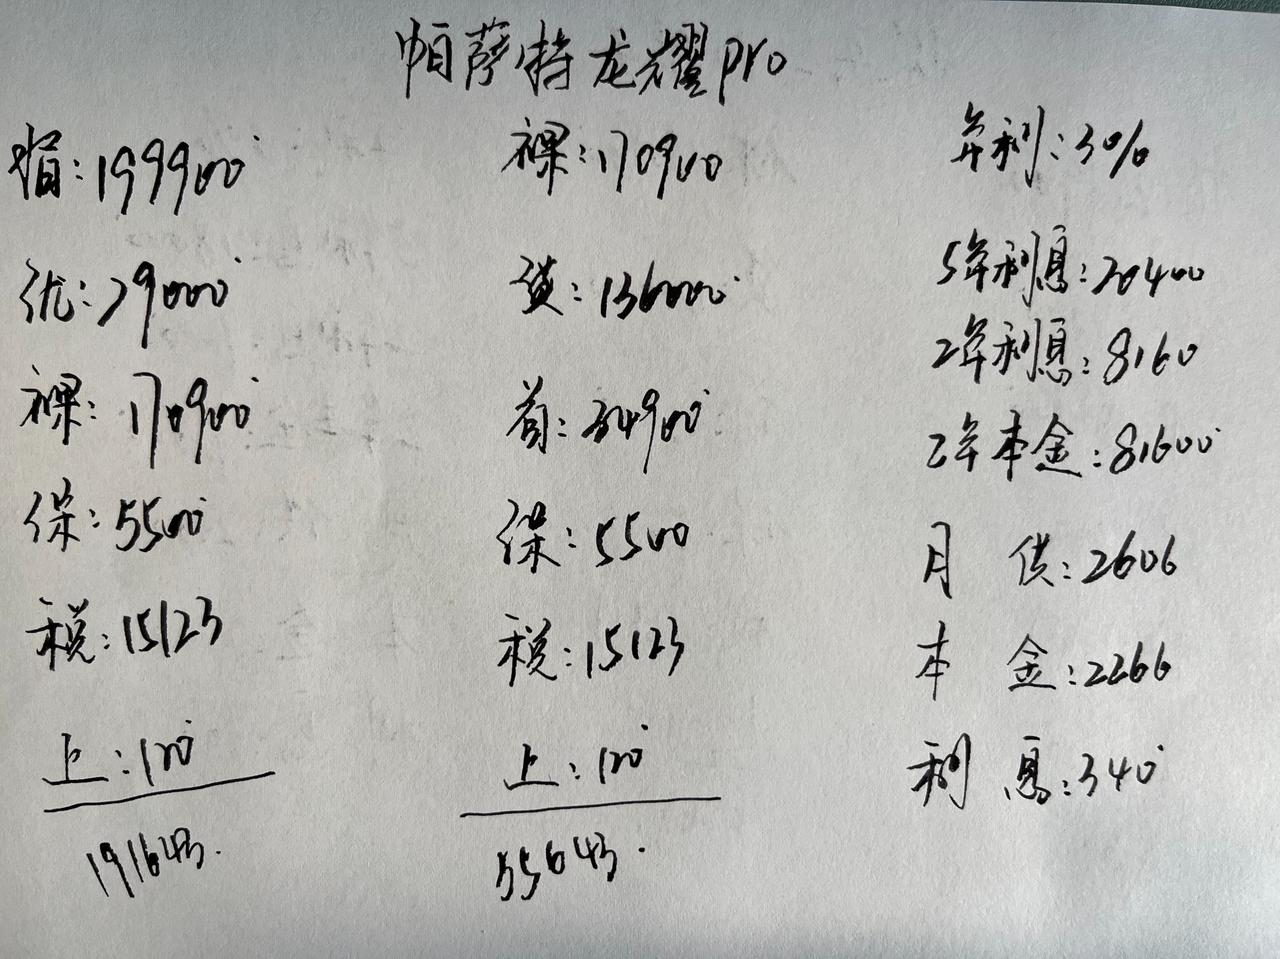 帕萨特龙耀pro
指:199900
优:29000
裸:170900
保:5500
税:15123
上:120
191643.
裸:170900
贷:136000
首:34900
保:5500
税:15123
上:120
55643.
年利:3%
5年利息:20400
2年利息:8160
2年本金:81600
月 供:2606
本 金:2266
利 息:340